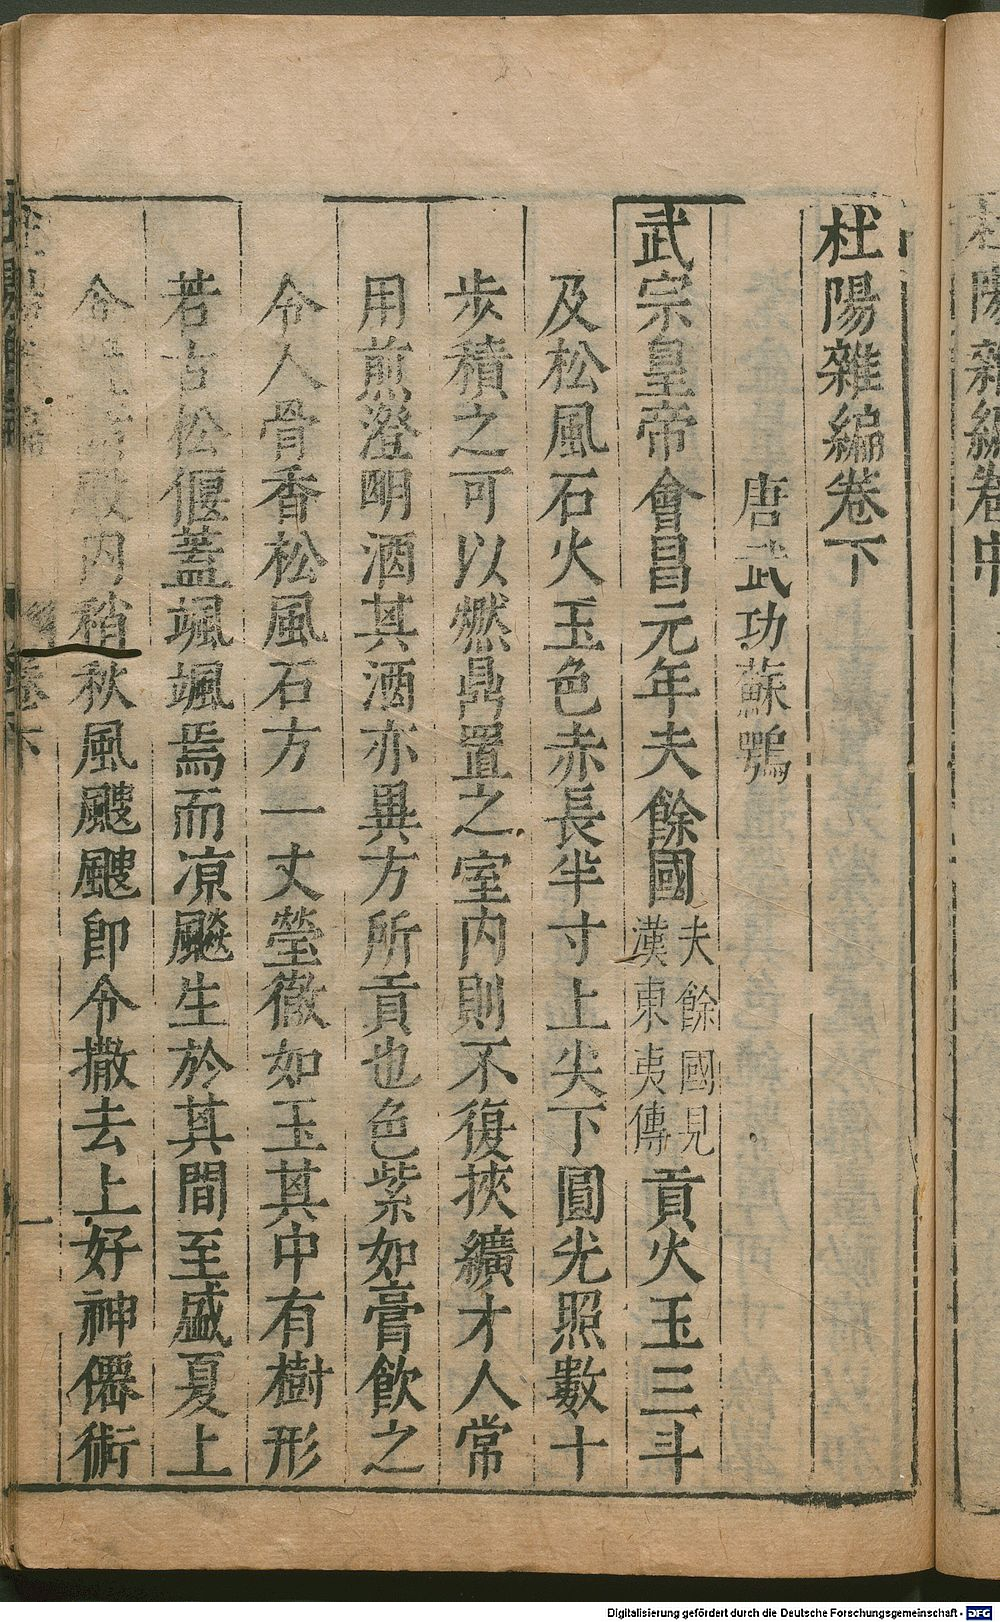 杜陽雜編卷下
唐武功蘇鶚
武宗皇帝會昌元年夫餘國夫餘國見漢東夷傳貢火玉三斗
及松風石火玉色赤長半寸上尖下圓光照數十
步積之可以燃鼎置之室内則不復挾纊才人常
用煎澄明酒其酒亦異方所貢也色紫如膏飲之
令人骨香松風石方一丈瑩徹如玉其中有樹形
若古松偃蓋颯颯焉而凉飈生於其間至盛夏上
令置諸殿内稍秋風颼颼即令撒去上好神僊術
卷下
一
杜陽雜編卷中
Digitalisierung gefördert durch die Deutsche Forschungsgemeinschaft - DFG